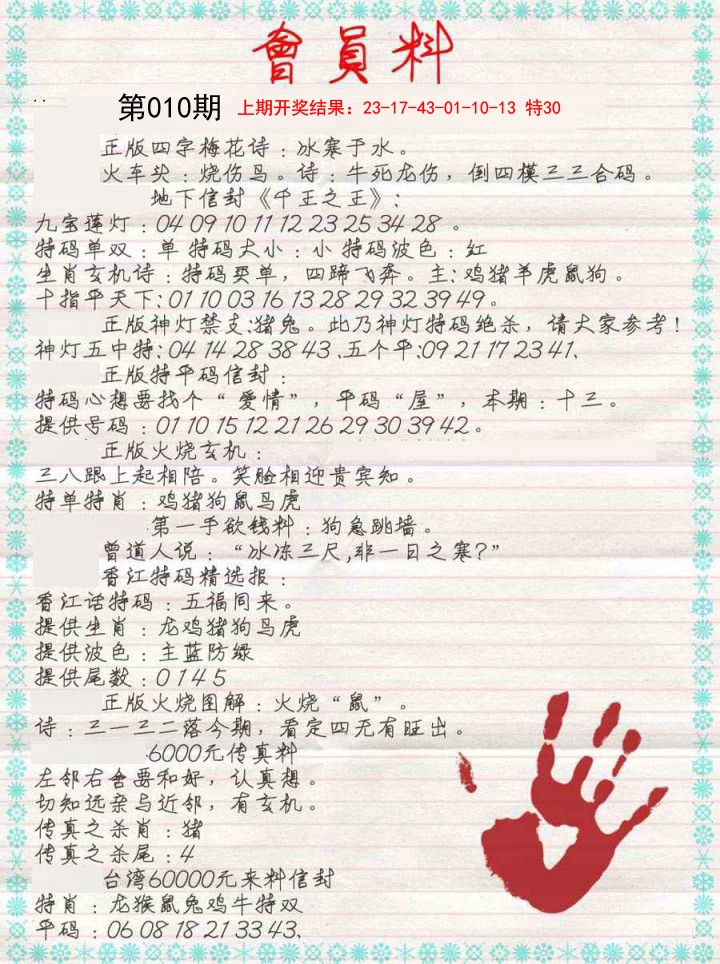 會員料
第010期 上期开奖结果：23-17-43-01-10-13 特30
正版四字梅花诗：冰寒于水。
火车头：烧伤鸟。诗：牛死龙伤，倒四模三三合码。
地下信封《千正之正》：
九宝莲灯：04 09 10 11 12 23 25 34 28 。
特码单双：单 特码大小：小 特码波色：红
生肖玄机诗：特码买单，四蹄飞奔。主：鸡猪羊虎鼠狗。
十指平天下：01 10 03 16 13 28 29 32 39 49。
正版神灯禁支：猪兔。此乃神灯特码绝杀，请大家参考！
神灯五中特：04 14 28 38 43 、五个平：09 21 17 23 41、
正版特平码信封：
特码心想要找个“ 爱情”，平码“屋”，本期：十三。
提供号码：01 10 15 12 21 26 29 30 39 42 。
正版火烧玄机：
三八跟上起相陪。笑脸相迎贵宾知。
特单特肖：鸡猪狗鼠鸟虎
第一手欲钱料：狗急跳墙。
曾道人说：“冰冻三尺,非一日之寒?”
香江特码精选报：
香江话特码：五福同来。
提供生肖：龙鸡猪狗鸟虎
提供波色：主蓝防绿
提供尾数：0 1 4 5
正版火烧图解：火烧“鼠”。
诗：三一三二落今期，看定四无有旺出。
6000元传真料
左邻右舍要和好，认真想。
切知远亲与近邻，有玄机。
传真之杀肖：猪
传真之杀尾：4
台湾60000元来料信封
特肖：龙猴鼠兔鸡牛特双
平码：06 08 18 21 33 43、